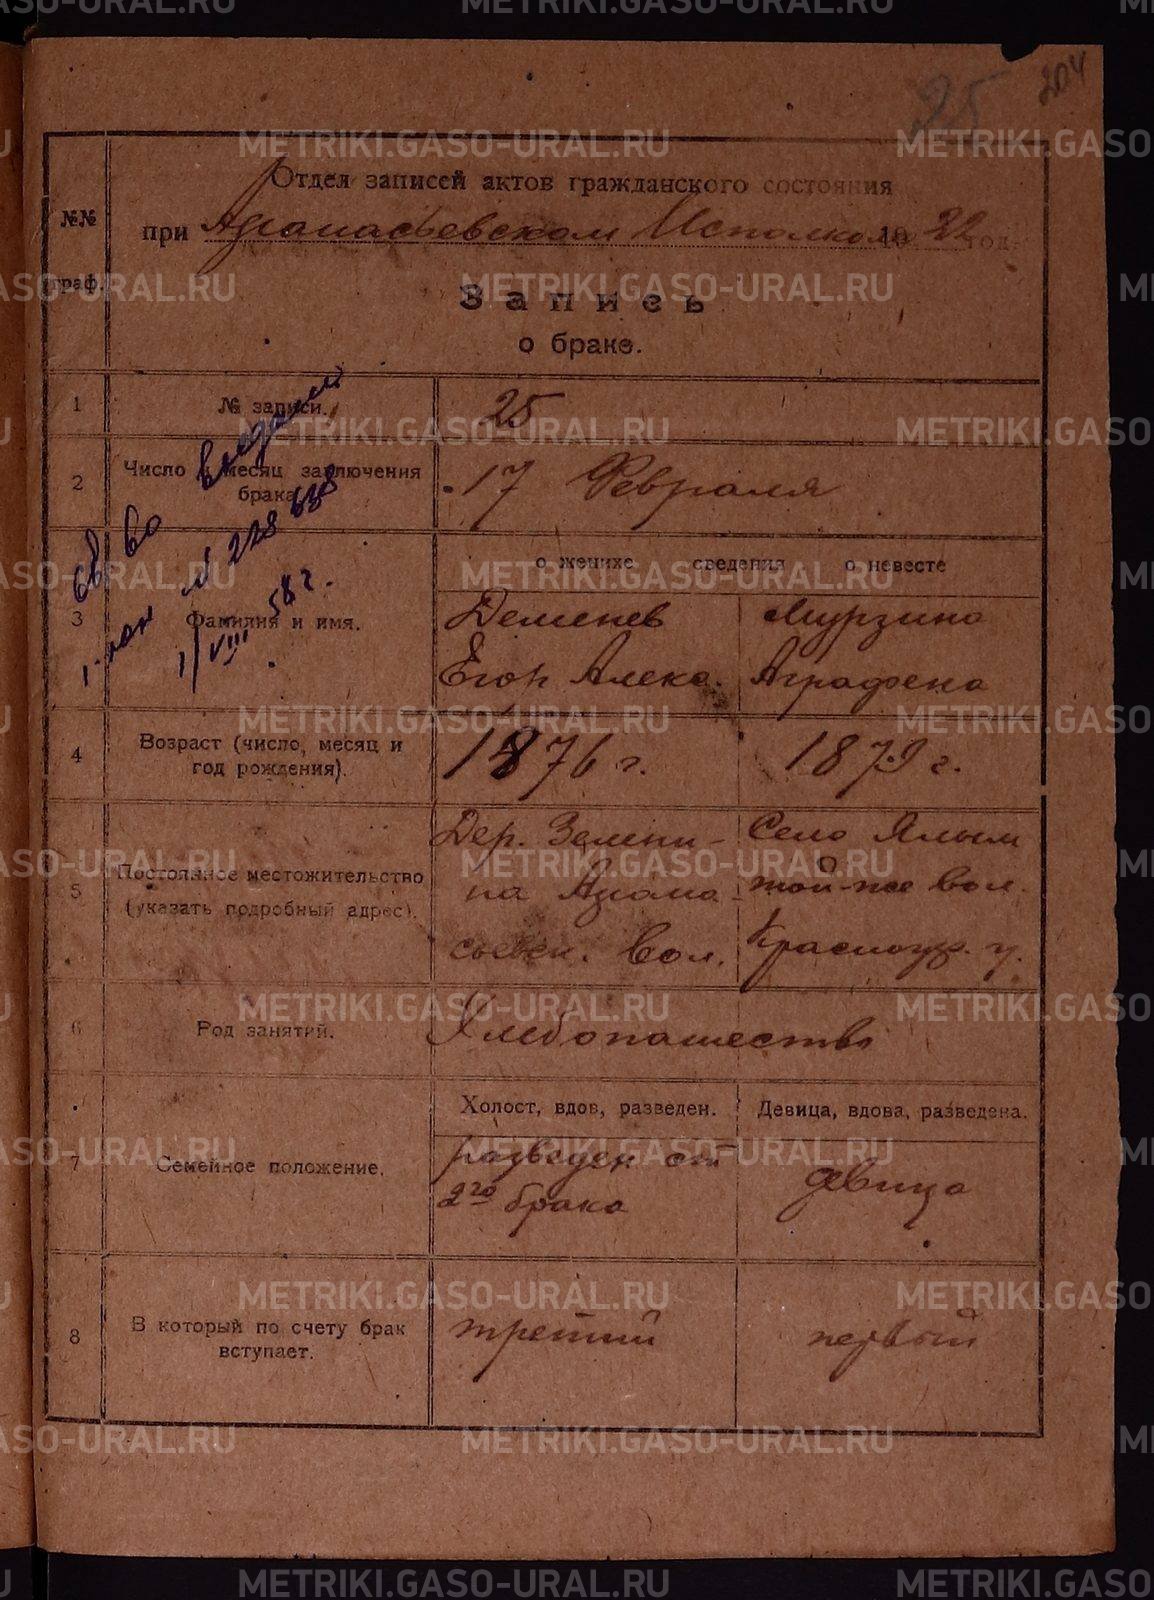 25
204
№№
граф.
Отдел записей актов гражданского состояния
при Афанасьевском Исполкоме 1922 год.
Запись
о браке.
1
№ записи.
25
2
Число и месяц заключения
брака
17 Февраля
св во выдали
I-пок № 228 638
1/VIII 58 г.
3
Фамилия и имя.
о женихе сведения о невесте
Деменев
Егор Алекс.
Мурзина
Аграфена
4
Возраст (число, месяц и
год рождения).
1876 г.
1879 г.
5
Постоянное местожительство
(указать подробный адрес).
Дер. Зелени-
на Афана-
сьевск. Вол.
Село Ялым
той-же Вол.
Красноуф. у.
6
Род занятий.
Хлебопашество
7
Семейное положение.
Холост, вдов, разведен.
Девица, вдова, разведена.
разведен от
2го брака
девица
8
В который по счету брак
вступает.
третий
первый
METRIKI.GASO-URAL.RU